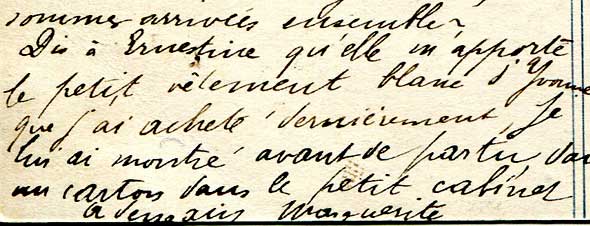 sommes arrivées ensemble
Dis à Ernestine qu'elle m'apporte
le petit vêtement blanc d'Yvonne
que j'ai acheté dernièrement, je
lui ai montré avant de partir, dans
un carton dans le petit cabinet
Marguerite